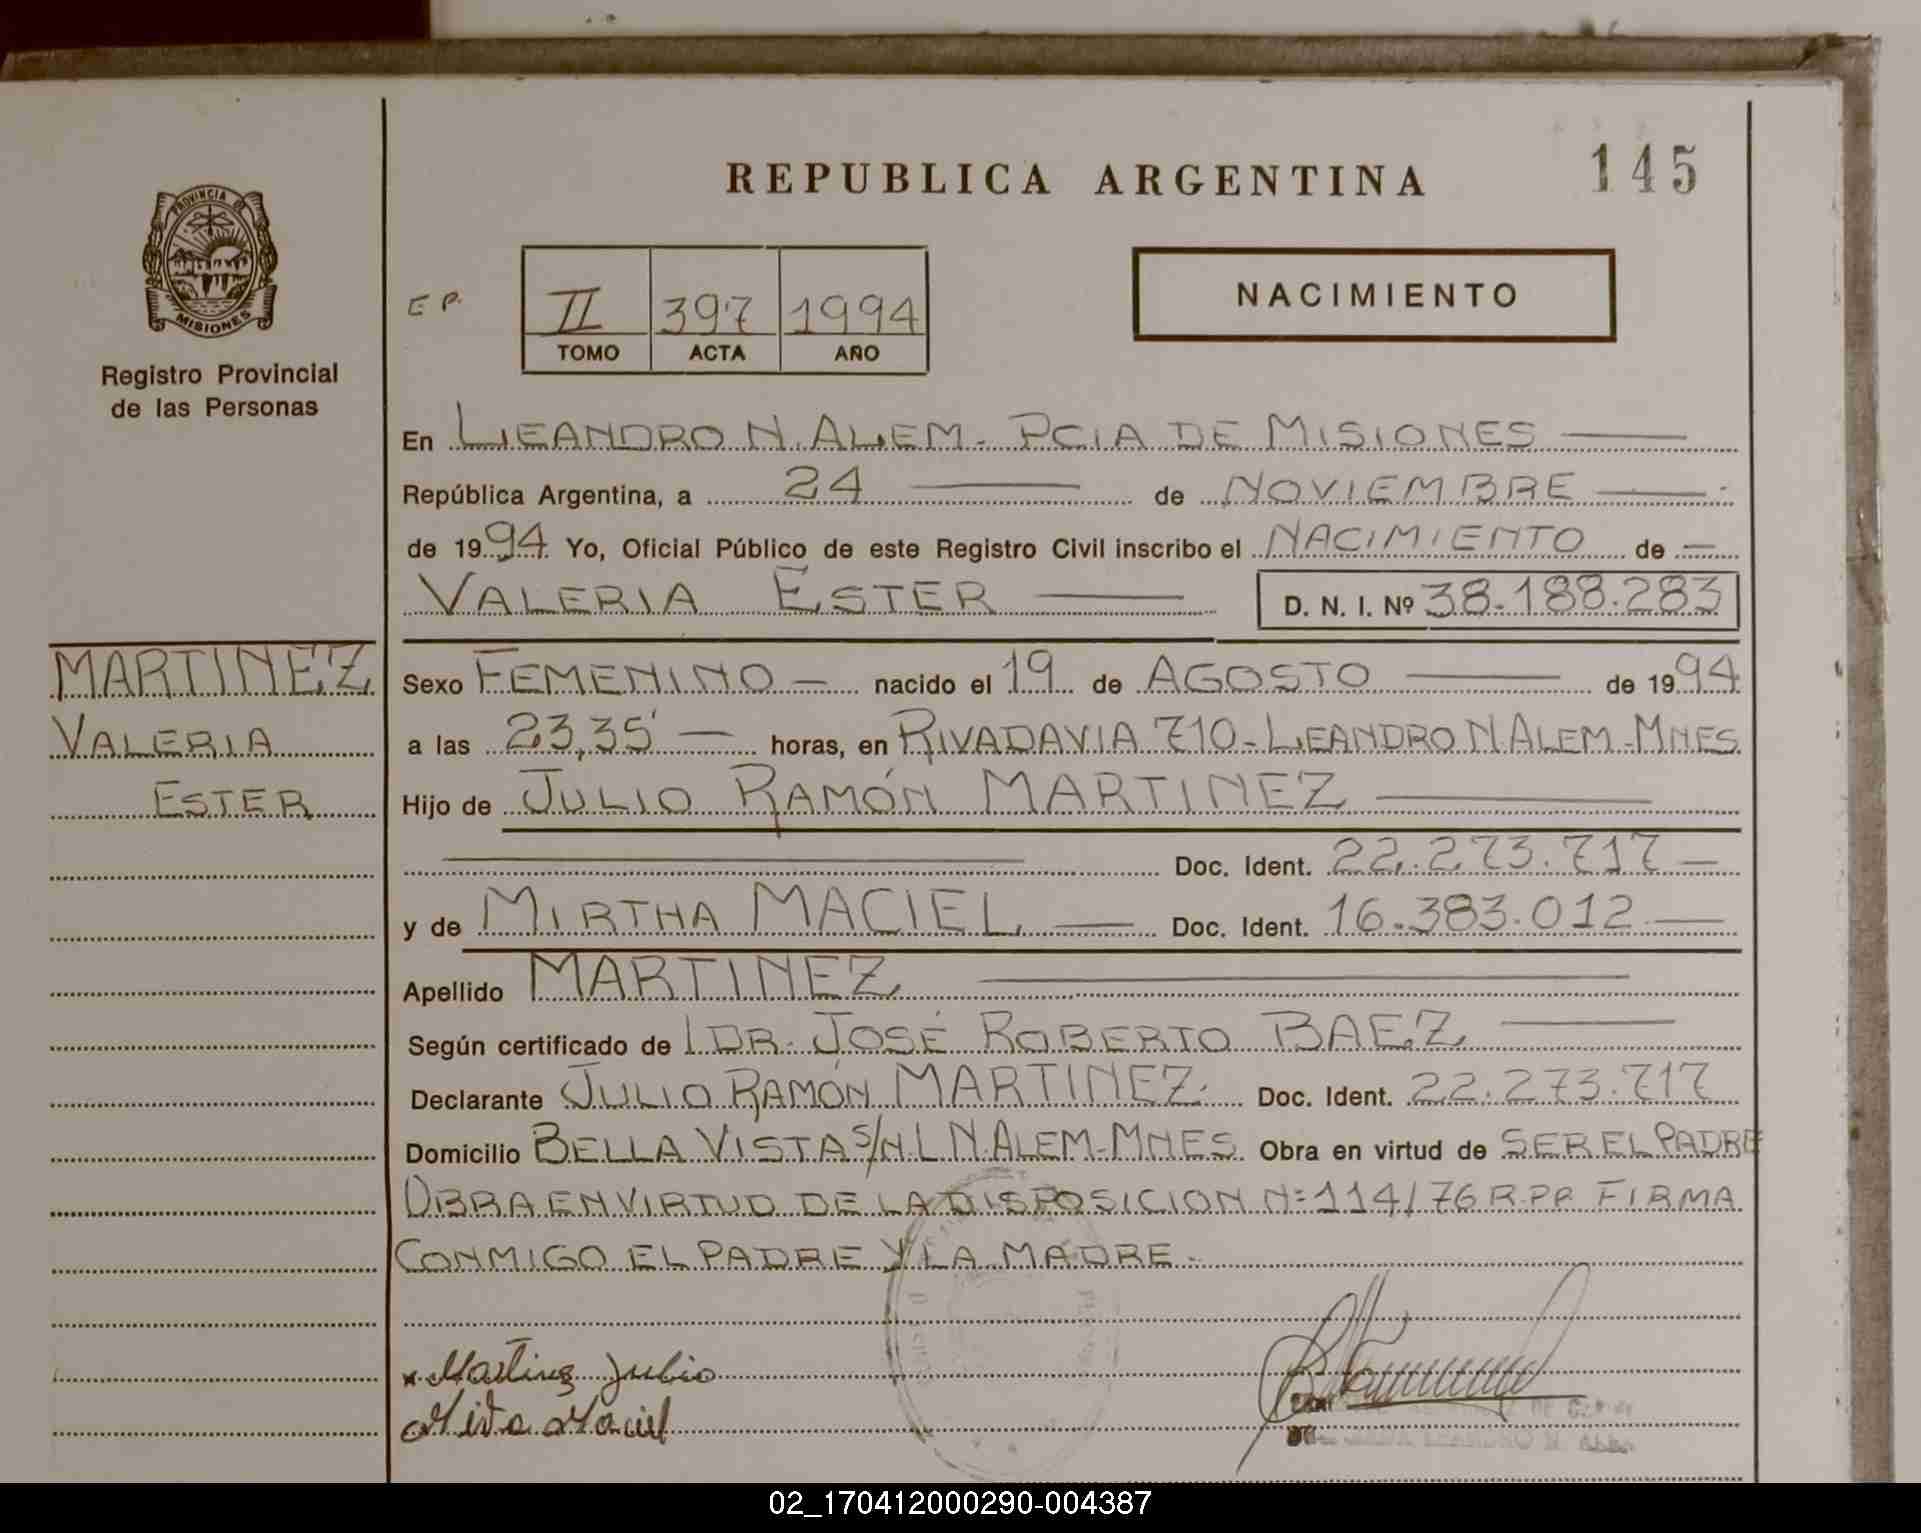 REPUBLICA ARGENTINA
145
PROVINCIA DE
MISIONES
Registro Provincial
de las Personas
E P.
II 397 1994
TOMO ACTA AÑO
NACIMIENTO
En LEANDRO N. ALEM - PCIA DE MISIONES
República Argentina, a 24 de NOVIEMBRE
de 1994 Yo, Oficial Público de este Registro Civil inscribo el NACIMIENTO de
VALERIA ESTER D. N. I. Nº 38.188.283
MARTINEZ
VALERIA
ESTER
Sexo FEMENINO nacido el 19 de AGOSTO de 1994
a las 23,35' horas, en RIVADAVIA 710 - LEANDRO N ALEM - MNES
Hijo de JULIO RAMÓN MARTINEZ
Doc. Ident. 22.273.717
y de MIRTHA MACIEL Doc. Ident. 16.383.012
Apellido MARTINEZ
Según certificado de DR. JOSÉ ROBERTO BAEZ
Declarante JULIO RAMÓN MARTINEZ. Doc. Ident. 22.273.717
Domicilio BELLA VISTA S/N L N. ALEM - MNES. Obra en virtud de SER EL PADRE
OBRA EN VIRTUD DE LA DISPOSICION N: 114/76 R.P.P. FIRMA
CONMIGO EL PADRE Y LA MADRE.-
x Martinez Julio
Maciel
02_170412000290-004387